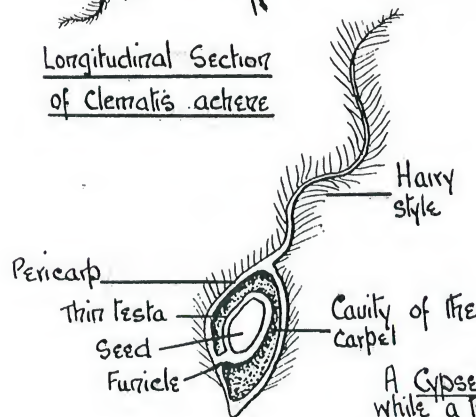 Longitudinal Section
of Clematis achene
Hairy
style
Pericarp
Thin testa
Seed
Funicle
Cavity of the
carpel
A Cypse
while a